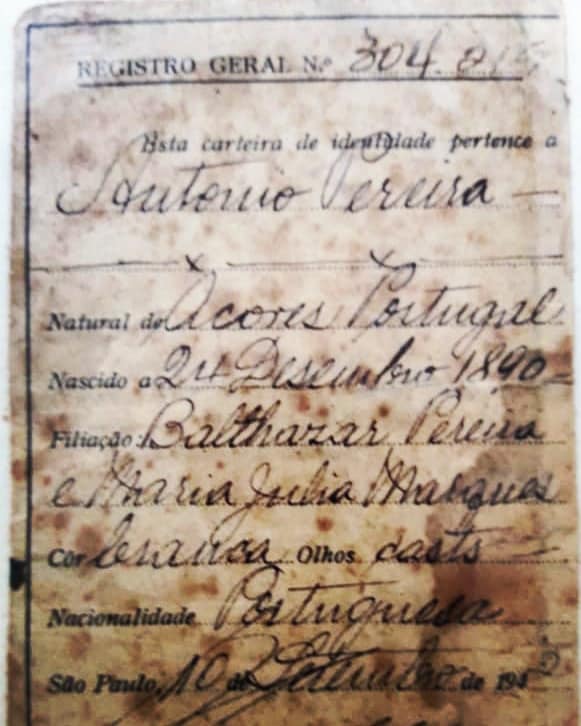 REGISTRO GERAL N.º 304
Esta carteira de identidade pertence a
Antonio Pereira
Natural de Açores Portugal
Nascido a 24 Desembro 1890
Filiação: Balthazar Pereira
e Maria Julia Marques
Côr branca Olhos casts
Nacionalidade Portuguesa
São Paulo, 10 de Setembro de 194